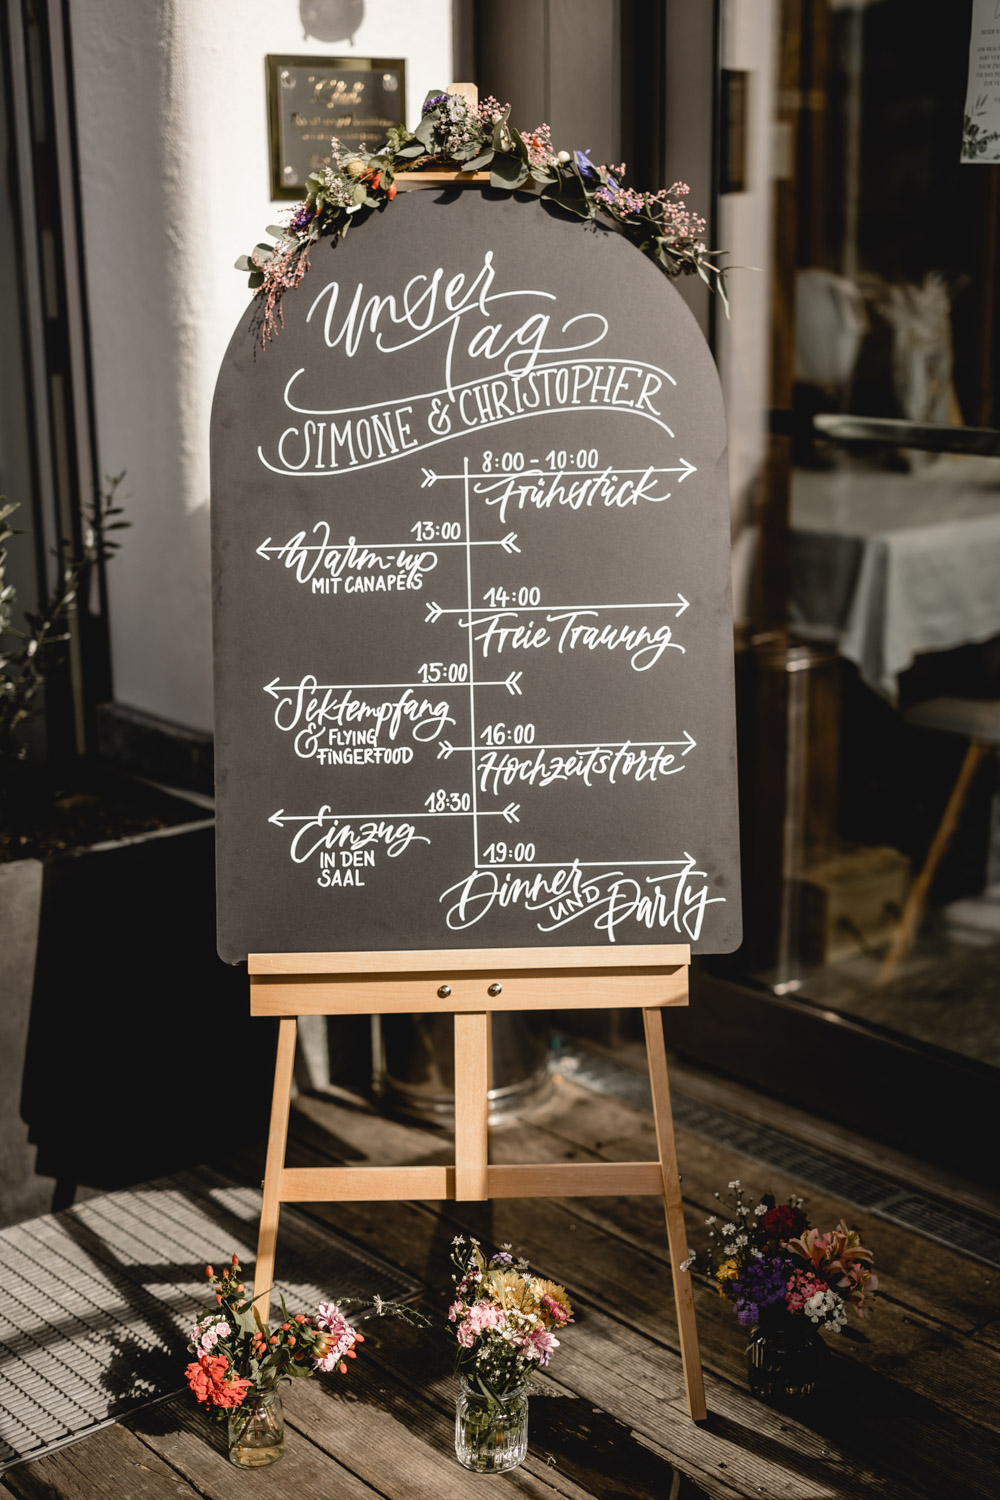 Unser
Tag
SIMONE & CHRISTOPHER
8:00 - 10:00
Frühstück
13:00
Warm-up
MIT CANAPÉS
14:00
Freie Trauung
15:00
Sektempfang
& FLYING
FINGERFOOD
16:00
Hochzeitstorte
18:30
Einzug
IN DEN
SAAL
19:00
Dinner UND Party